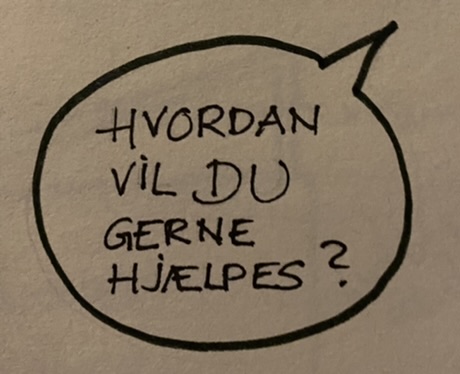 HVORDAN
VIL DU
GERNE
HJÆLPES?